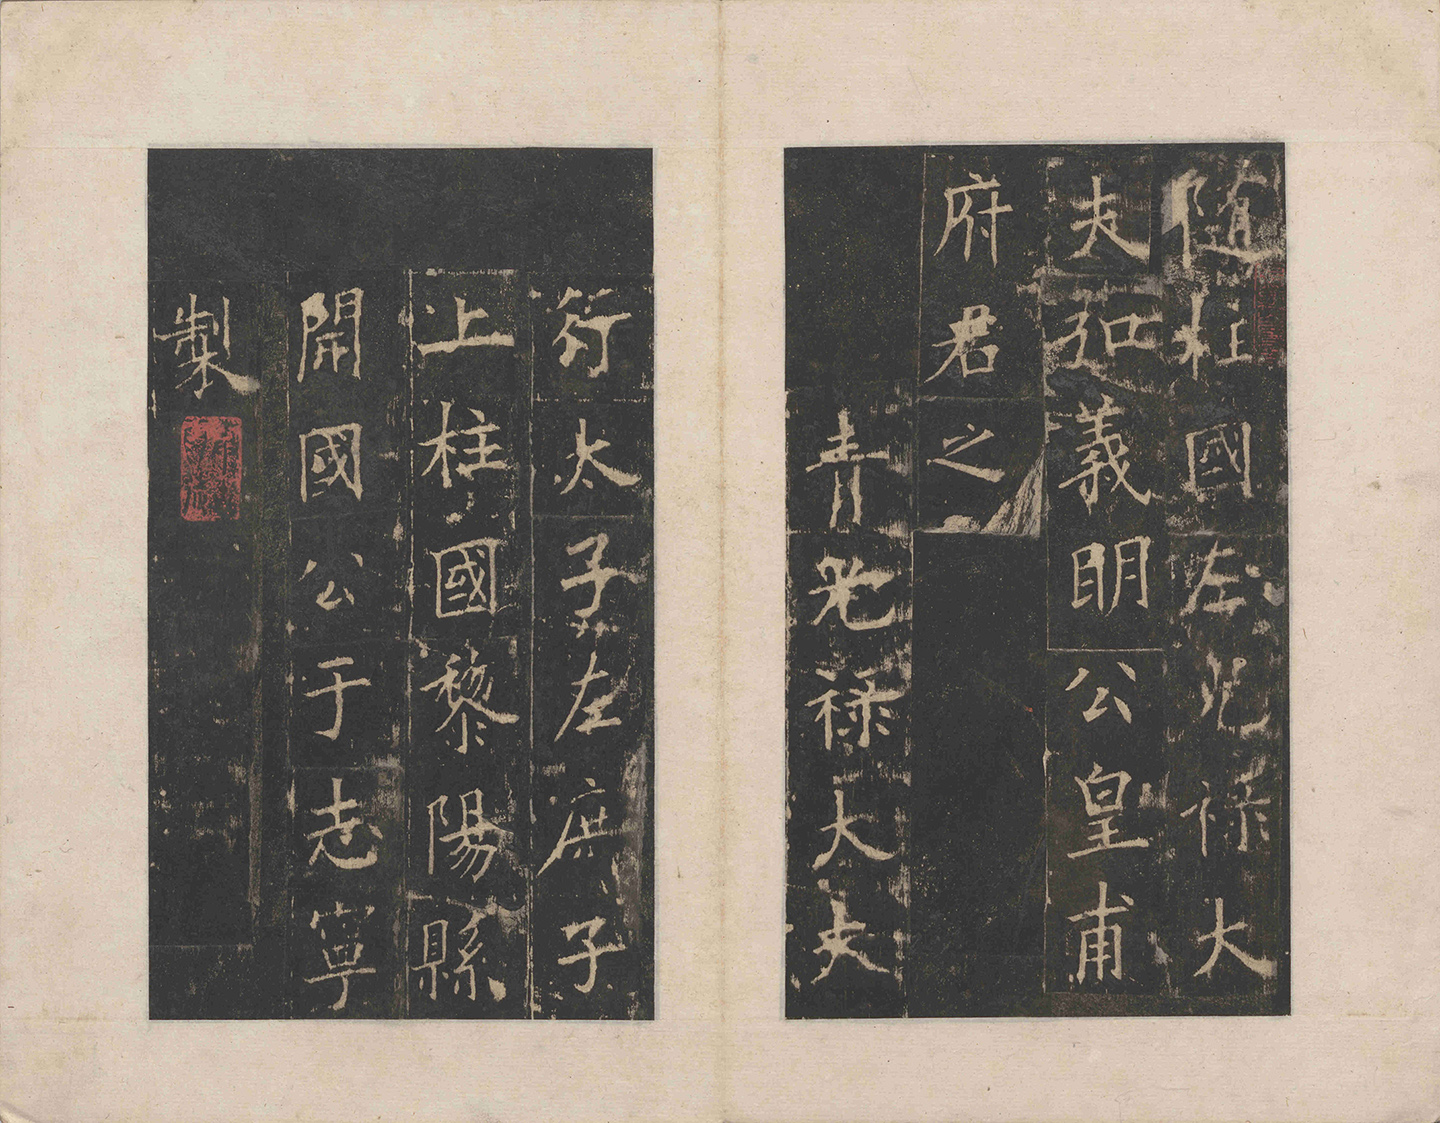 隨柱國左光祿大
夫弘義明公皇甫
府君之
青光祿大夫
行太子左庶子
上柱國黎陽縣
開國公于志寧
製